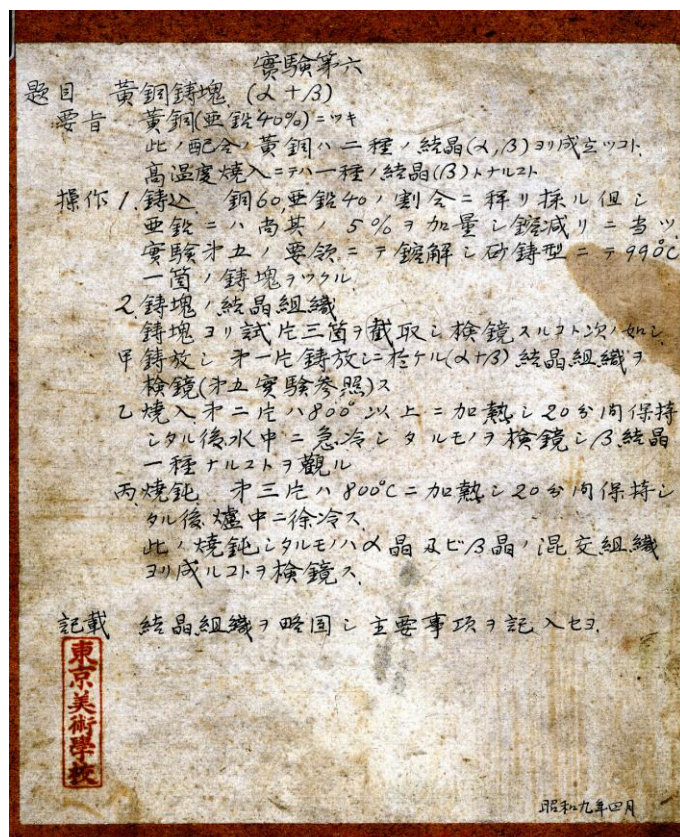 實驗第六
題目　黃銅鋳塊　(α＋β)
要旨　黃銅(亜鉛40%)ニツキ
此ノ配合ノ黃銅ハ二種ノ結晶(α,β)ヨリ成立ツコト.
高温度焼入ニテハ一種ノ結晶(β)トナルコト
操作 1. 鋳込　銅60,亜鉛40ノ割合ニ秤リ採ル但シ
亜鉛ニハ尚其ノ5%ヲ加量シ鎔減リニ当ツ.
實驗才五ノ要領ニテ鎔解シ砂鋳型ニテ990℃
一箇ノ鋳塊ヲツクル.
2. 鋳塊ノ結晶組織
鋳塊ヨリ試片三箇ヲ截取シ検鏡スルコト次ノ如シ.
甲 鋳放シ　才一片鋳放シニ於ケル(α+β)結晶組織ヲ
検鏡(才五實驗参照)ス
乙 焼入　才二片ハ800°以上ニ加熱シ20分间保持
シタル後水中ニ急冷シタルモノヲ検鏡シβ結晶
一種ナルコトヲ觀ル
丙 焼鈍　才三片ハ800℃ニ加熱シ20分间保持シ
タル後爐中ニ徐冷ス.
此ノ焼鈍シタルモノハα晶及ビβ晶ノ混交組織
ヨリ成ルコトヲ検鏡ス.
記載　結晶組織ヲ略図シ主要事項ヲ記入セヨ.
東京美術學校
昭和九年四月